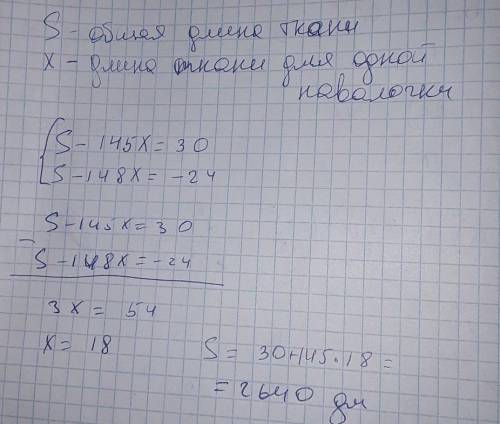 S - общая длина ткани
X - длина ткани для одной
наволочки
S - 145X = 30
S - 148X = -24
S - 145X = 30
- S - 148X = -24
3X = 54
X = 18
S = 30+145·18 =
= 2640 дм